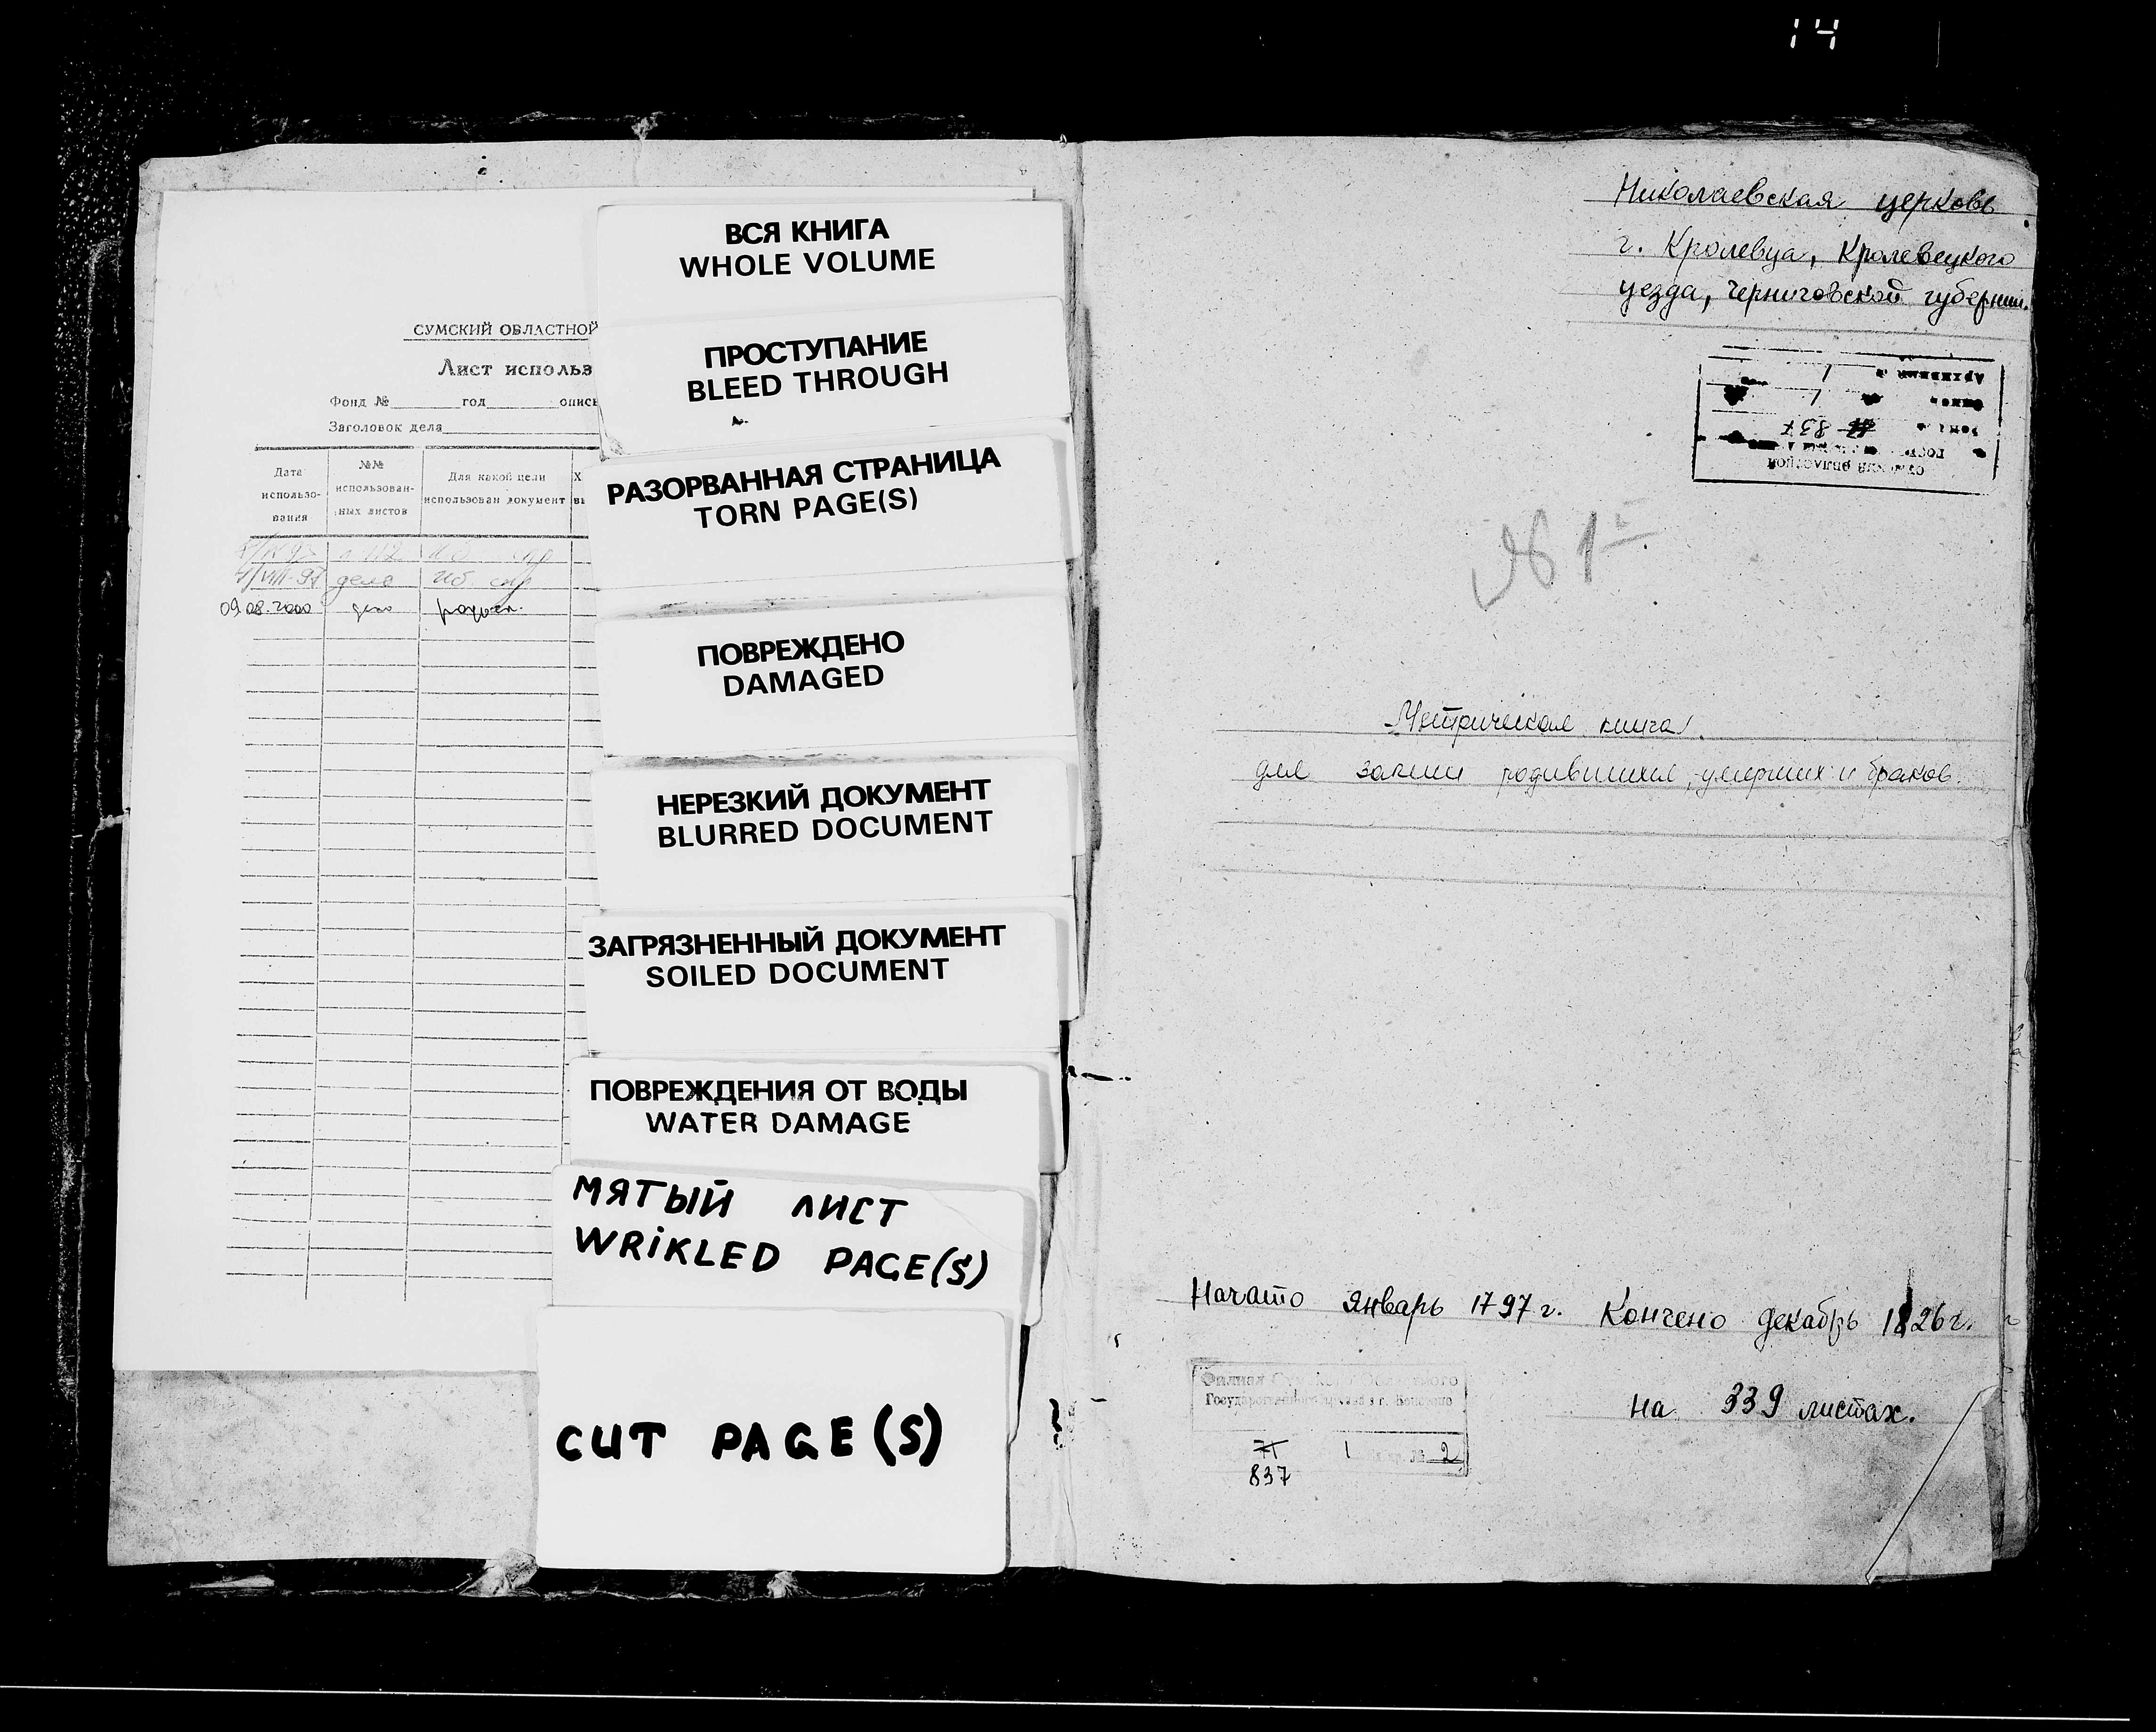 14
СУМСКИЙ ОБЛАСТНОЙ
Лист использ
Фонд № год опись
Заголовок дела
Дата использо- вания
№№ использован- ных листов
Для какой цели использован документ
09.08.2000 дело
ВСЯ КНИГА
WHOLE VOLUME
ПРОСТУПАНИЕ
BLEED THROUGH
РАЗОРВАННАЯ СТРАНИЦА
TORN PAGE(S)
ПОВРЕЖДЕНО
DAMAGED
НЕРЕЗКИЙ ДОКУМЕНТ
BLURRED DOCUMENT
ЗАГРЯЗНЕННЫЙ ДОКУМЕНТ
SOILED DOCUMENT
ПОВРЕЖДЕНИЯ ОТ ВОДЫ
WATER DAMAGE
МЯТЫЙ ЛИСТ
WRIKLED PAGE(S)
CUT PAGE(S)
Николаевская церковь
г. Кролевца, Кролевецкого
уезда, Черниговской губернии.
837
№ 1
Метрическая книга
для записи родившихся, умерших и браков.
Начато январь 1797 г. Кончено декабрь 1826 г.
на 339 листах.
Филиал
71 1 2
837